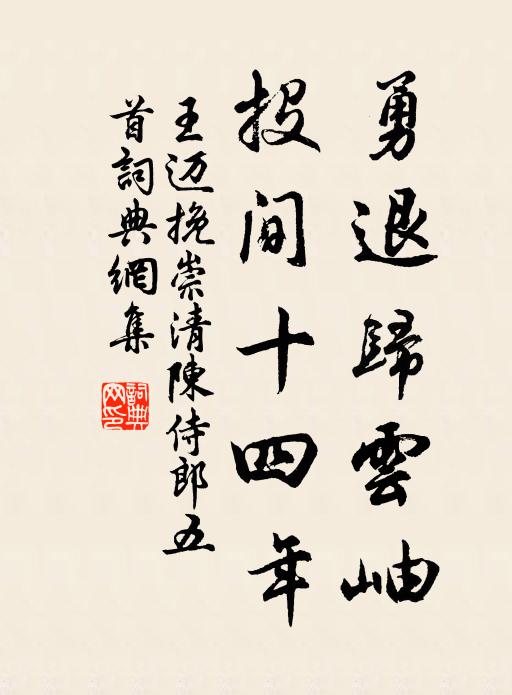 勇退歸雲岫
投閒十四年
王迈挽崇清陳侍郎五
首詞典網集
詞典网印